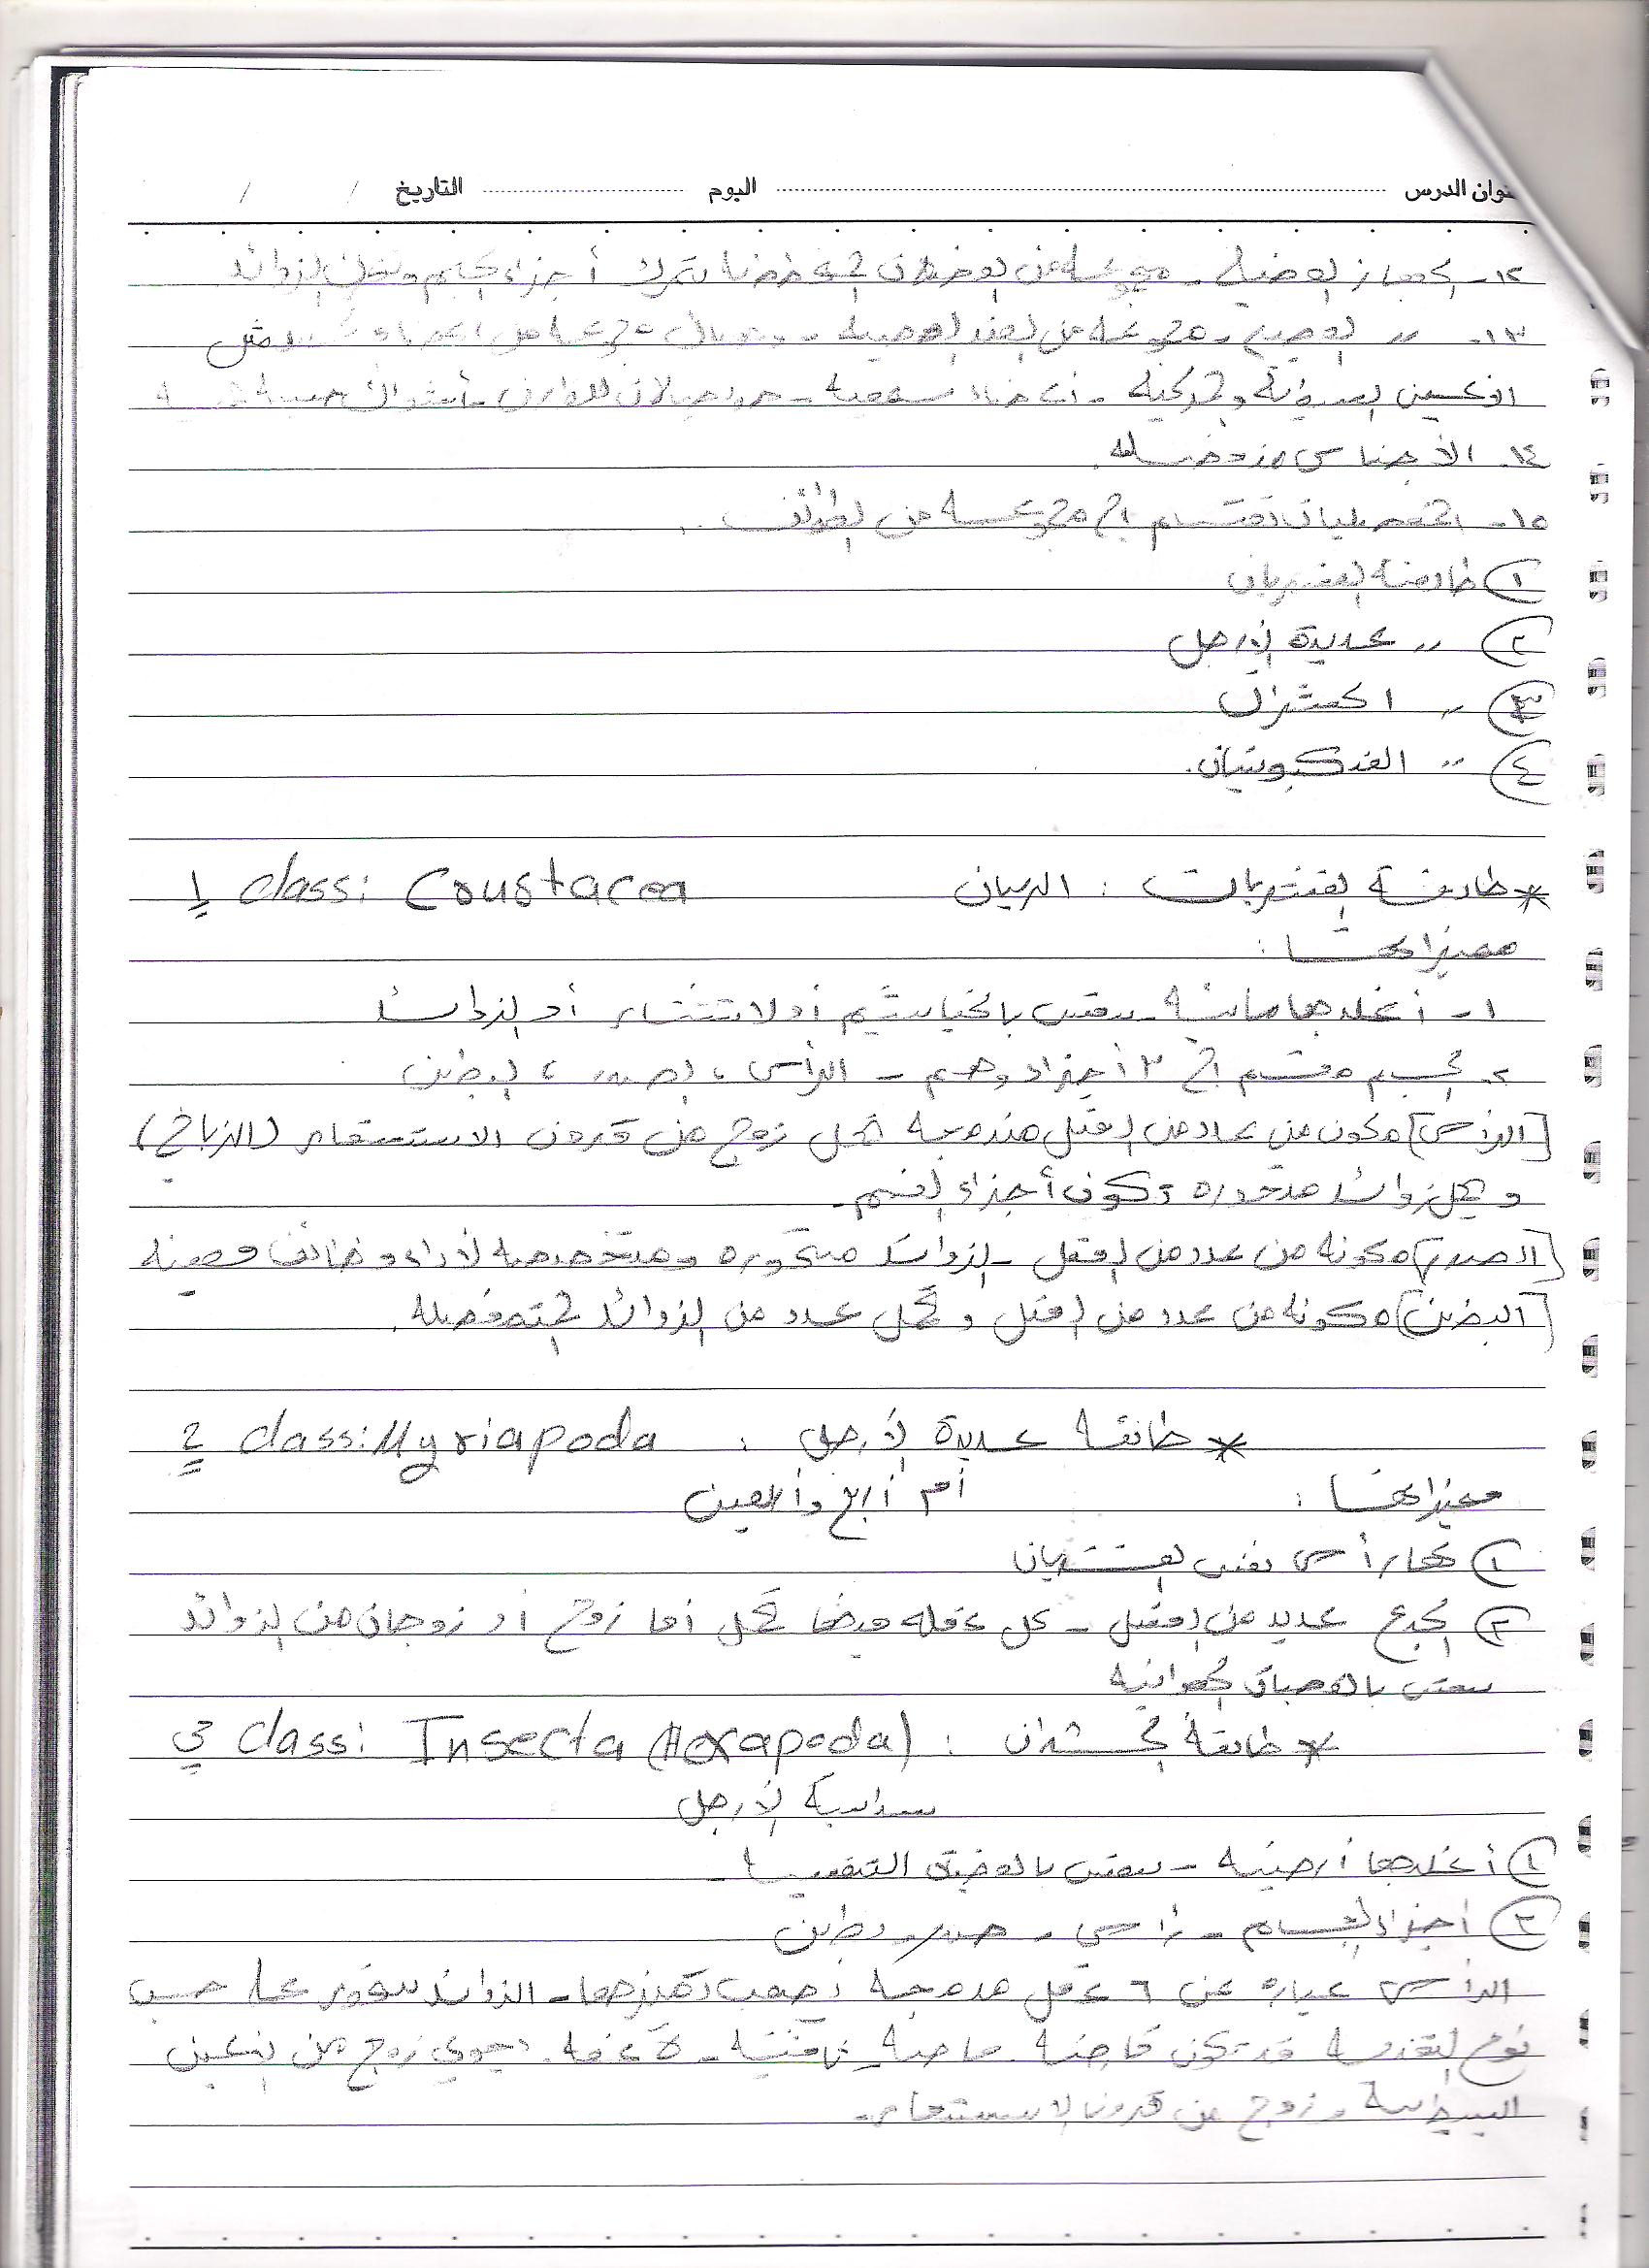 عنوان الدرس اليوم التاريخ / /
١٢- الجهاز العضلي - مجموعة من العضلات المخططة تحرك أجزاء الجسم وتلك الزوائد
١٣- " العصبي - مجموعة من العقد العصبية - مجموعة من
العينين البسيطة والمركبة - أعضاء سمعية -
١٤- الأجناس منفصله
١٥- المفصليات تقسم الى مجموعة من الطوائف
١ طائفة القشريات
٢ " عديدة الأرجل
٣ " الحشرات
٤ " العنكبوتيات.
* طائفة القشريات : الربيان class: Croustacea 1
مميزاتها :
١- أغلبها مائية - تتنفس بالخياشيم أو الانتشار أو الزوائد
٢- الجسم مقسم الى ٣ أجزاء وهم - الرأس ، الصدر ، البطن
[الرأس] مكون من عدد من العقل مندمجة تحمل زوج من قرون الاستشعار (الزبانى)
و يحمل زوائد متحوره تكون أجزاء الفم -
[الصدر] مكونه من عدد من العقل - الزوائد متحوره ومتخصصه لأداء وظائف معينه
[البطن] مكونه من عدد من العقل و تحمل عدد من الزوائد المتمفصله .
* طائفة عديدة الأرجل : class: Myriapoda 2
مميزاتها : أم أربع وأربعين
١ لها رأس نفس القشريات
٢ الجذع عديد من العقل - كل عقله منها تحمل أما زوج أو زوجان من الزوائد
تتنفس بالقصبات الهوائيه
* طائفة الحشرات : class: Insecta (Hexapoda) 3
سداسية الأرجل
١ أغلبها أرضيه - تتنفس بالقصبات التنفسية -
٢ أجزاء الجسم - رأس - صدر - بطن
الرأس عباره عن ٦ عقل مدمجه يصعب تمييزها - الزوائد تتحور على حسب
نوع التغذيه قد تكون قارضه ماصه ثاقبة - لاعقه . يحوي زوج من العيون
البسيطه وزوج من قرون الاستشعار -